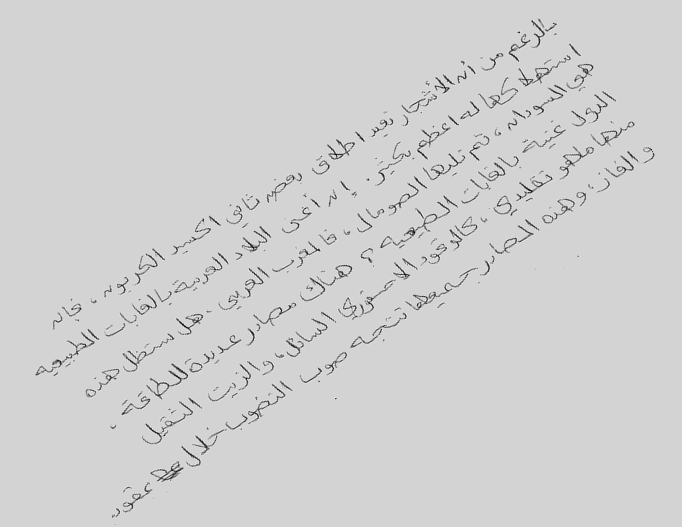 بالرغم من أن الأشجار تعيد اطلاق بعض ثاني اكسيد الكربون ، فإن
استهلاكها له اعظم بكثير . إن أغنى البلاد العربية بالغابات الطبيعيه
هي السودان ، ثم تليها الصومال ، فالمغرب العربي . هل ستظل هذه
الدول غنية بالغابات الطبيعيه ؟ هناك مصادر عديدة للطاقة .
منها ماهو تقليدي ، كالوقود الاحفوري السائل ، والزيت الثقيل
والغاز ، وهذه المصادر جميعها تتجه صوب النضوب خلال عقود